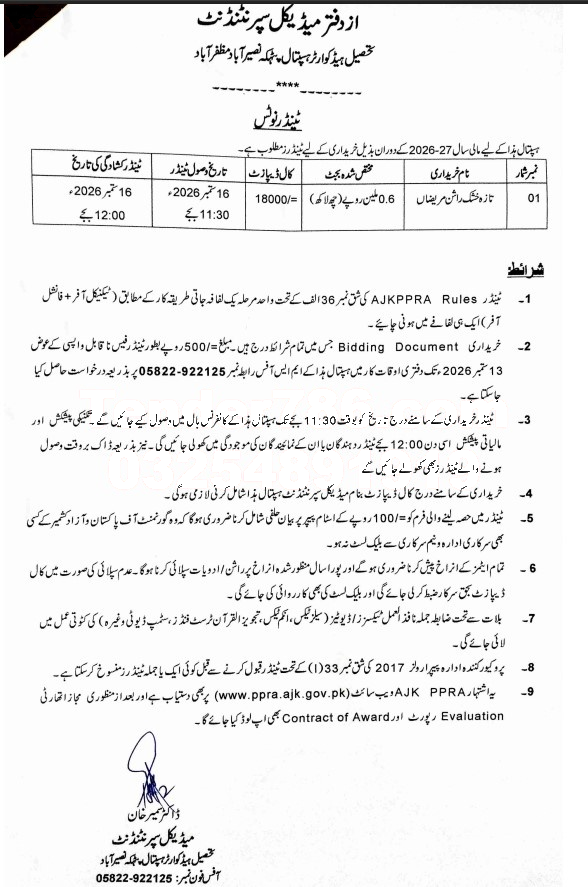 از دفتر میڈیکل سپرنٹنڈنٹ
تحصیل ہیڈ کوارٹر ہسپتال پٹہکہ نصیر آباد مظفر آباد
--------****--------
ٹینڈر نوٹس
ہسپتال ہذا کے لیے مالی سال 27-2026 کے دوران بذیل خریداری کے لیے ٹینڈرز مطلوب ہے۔
نمبر شمار نام خریداری مختص شدہ بجٹ کال ڈیپازٹ تاریخ وصول ٹینڈر ٹینڈر کشادگی کی تاریخ
01 تازہ خشک راشن مریضاں 0.6 ملین روپے (چھ لاکھ) 18000/= 16 ستمبر 2026ء 16 ستمبر 2026ء
11:30 بجے 12:00 بجے
شرائط:
1۔ ٹینڈر AJKPPRA Rules کی شق نمبر 36 الف کے تحت واحد مرحلہ یک لفافہ جاتی طریقہ کار کے مطابق (ٹیکنیکل آفر + فانشل
آفر) ایک ہی لفافے میں ہونی چاہیے۔
2۔ خریداری Bidding Document جس میں تمام شرائط درج ہیں۔ مبلغ =/500 روپے بطور ٹینڈر فیس نا قابل واپسی کے عوض
13 ستمبر 2026ء تک دفتری اوقات کار میں ہسپتال ہذا کے ایم ایس آفس رابطہ نمبر 05822-922125 پر بذریعہ درخواست حاصل کیا
جاسکتا ہے۔
3۔ ٹینڈر خریداری کے سامنے درج تاریخ کو بوقت 11:30 بجے تک ہسپتال ہذا کے کانفرنس ہال میں وصول کیے جائیں گے۔ تکنیکی پیشکش اور
مالیاتی پیشکش اسی دن 12:00 بجے ٹینڈر دہندگان یا ان کے نمائندگان کی موجودگی میں کھولی جائیں گی۔ نیز بذریعہ ڈاک بروقت وصول
ہونے والے ٹینڈرز بھی کھولے جائیں گے
4۔ خریداری کے سامنے درج کال ڈیپازٹ بنام میڈیکل سپرنٹنڈنٹ ہسپتال ہذا شامل کرنی لازمی ہوگی۔
5۔ ٹینڈر میں حصہ لینے والی فرم کو =/100 روپے کے اسٹام پیپر پر بیان حلفی شامل کرنا ضروری ہوگا کہ وہ گورنمنٹ آف پاکستان و آزاد کشمیر کے کسی
بھی سرکاری ادارہ و نیم سرکاری سے بلیک لسٹ نہ ہو۔
6۔ تمام ایٹمز کے انراخ پیش کرنا ضروری ہوگے اور پورا سال منظور شدہ انراخ پر راشن / ادویات سپلائی کرنا ہوگا۔ عدم سپلائی کی صورت میں کال
ڈیپازٹ بحق سرکار ضبط کر لی جائے گی اور بلیک لسٹ کی بھی کارروائی کی جائے گی۔
7۔ بلات سے تحت ضابطہ جملہ نافذ العمل ٹیکسز / ڈیوٹیز (سیلز ٹیکس، انکم ٹیکس، تجویز القرآن ٹرسٹ فنڈز، سٹمپ ڈیوٹی وغیرہ) کی کٹوتی عمل میں
لائی جائے گی۔
8۔ پروکیور کنندہ ادارہ پیپرا رولز 2017 کی شق نمبر 33(I) کے تحت ٹینڈر قبول کرنے سے قبل کوئی ایک یا جملہ ٹینڈرز منسوخ کر سکتا ہے۔
9۔ یہ اشتہار AJK PPRA ویب سائٹ (www.ppra.ajk.gov.pk) پر بھی دستیاب ہے اور بعد از منظوری مجاز اتھارٹی
Evaluation رپورٹ اور Contract of Award بھی اپ لوڈ کیا جائے گا۔
ڈاکٹر سمیر خان
میڈیکل سپرنٹنڈنٹ
تحصیل ہیڈ کوارٹر ہسپتال پٹہکہ نصیر آباد
آفس فون نمبر: 05822-922125